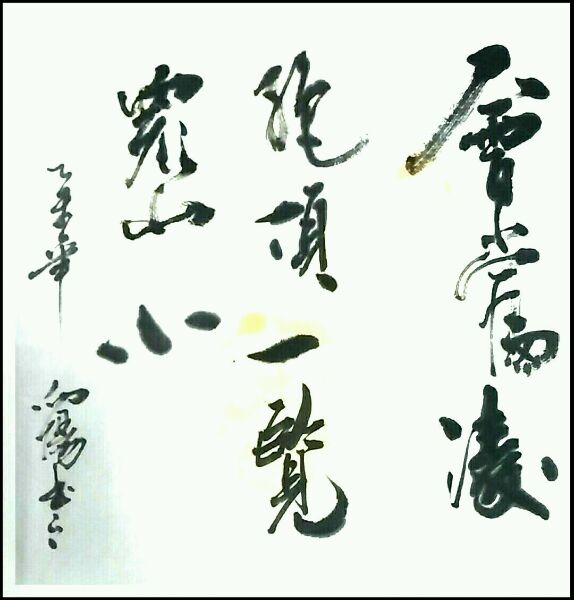 會當凌
絕頂一覽
衆山小
乙未年